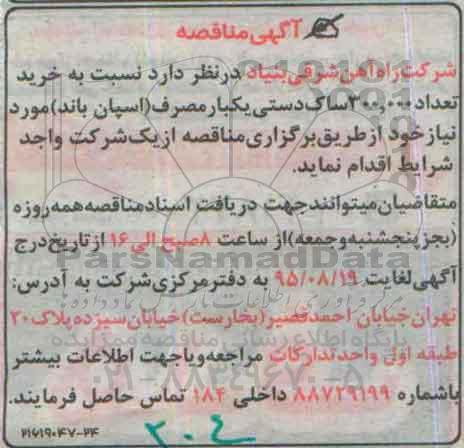 آگهی مناقصه
شرکت راه آهن شرقی بنیاد درنظر دارد نسبت به خرید
تعداد ۳۰۰,۰۰۰ ساک دستی یکبار مصرف (اسپان باند) مورد
نیاز خود از طریق برگزاری مناقصه از یک شرکت واجد
شرایط اقدام نماید.
متقاضیان میتوانند جهت دریافت اسناد مناقصه همه روزه
(بجز پنجشنبه و جمعه) از ساعت ۸ صبح الی ۱۶ از تاریخ درج
آگهی لغایت ۹۵/۰۸/۱۹ به دفتر مرکزی شرکت به آدرس:
تهران خیابان احمد قصیر (بخارست) خیابان سیزده پلاک ۲۰
طبقه اول واحد تدارکات مراجعه و یا جهت اطلاعات بیشتر
با شماره ۸۸۷۲۹۱۹۹ داخلی ۱۸۴ تماس حاصل فرمایند.
۲۱۶۱۹۰۴۷-۲۴
۲۰۴
ParsNamadData
پایگاه اطلاع رسانی مناقصه مزایده
۰۲۱-۸۸۳۴۹۶۷۰-۵